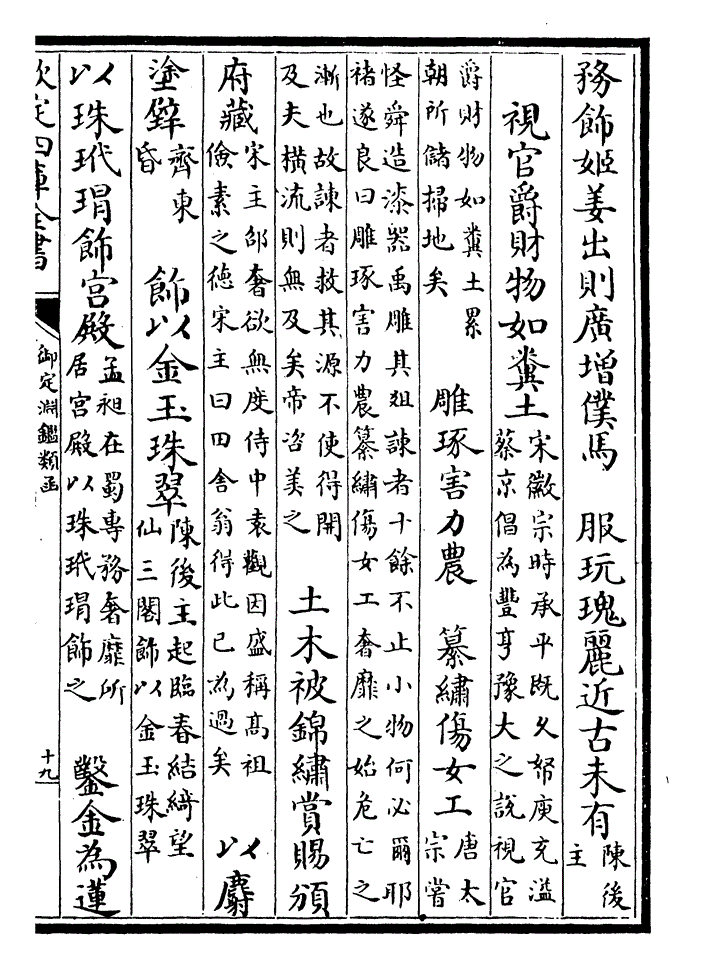 務飾姬姜出則廣增僕馬　服玩瑰麗近古未有陳後
主
視官爵財物如糞土宋徽宗時承平既久帑庾充溢
蔡京倡為豐亨豫大之說視官
爵財物如糞土累
朝所儲掃地矣
雕琢害力農　纂繡傷女工唐太
宗嘗
怪舜造漆器禹雕其俎諫者十餘不止小物何必爾耶
褚遂良曰雕琢害力農纂繡傷女工奢靡之始危亡之
漸也故諫者救其源不使得開
及夫橫流則無及矣帝咨美之
土木被錦繡賞賜頒
府藏宋主邵奢欲無度侍中袁觀因盛稱高祖
儉素之德宋主曰田舍翁得此已為過矣
以麝
塗壁齊東
昏
飾以金玉珠翠陳後主起臨春結綺望
仙三閣飾以金玉珠翠
以珠玳瑁飾宮殿孟昶在蜀專務奢靡所
居宮殿以珠玳瑁飾之
鑿金為蓮
欽定四庫全書
御定淵鑑類函
十九